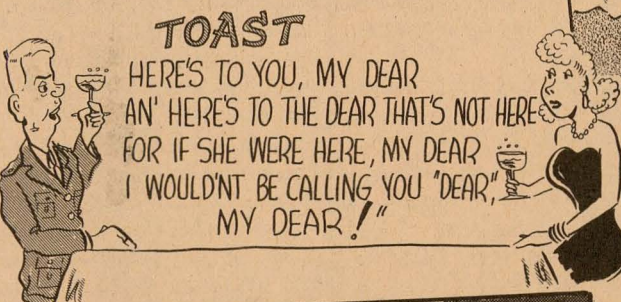 TOAST
HERE'S TO YOU, MY DEAR
AN' HERE'S TO THE DEAR THAT'S NOT HERE
FOR IF SHE WERE HERE, MY DEAR
I WOULD'NT BE CALLING YOU "DEAR",
MY DEAR!"